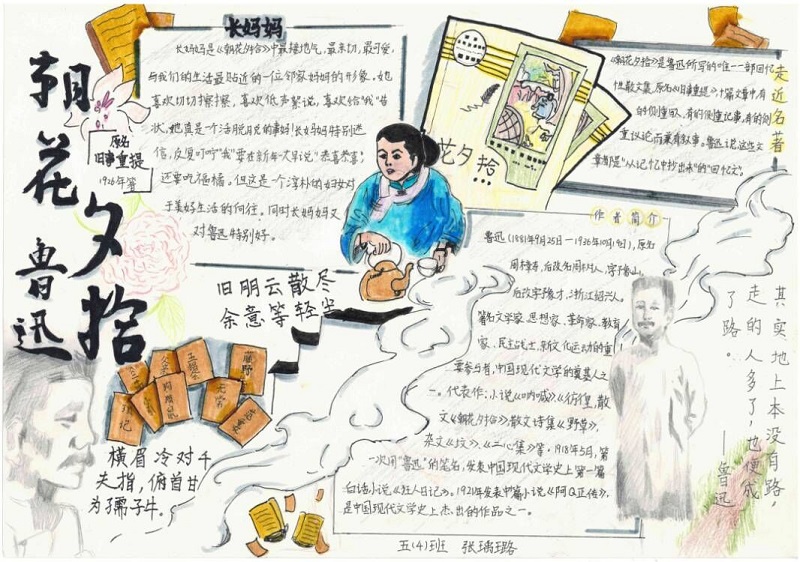 朝花夕拾
鲁迅
原名
旧事重提
1926年等
长妈妈
长妈妈是《朝花夕拾》中最接地气,最亲切,最可爱,
与我们的生活最贴近的一位邻家妈妈的形象。她
喜欢切切擦擦,喜欢低声絮说,喜欢给“我”告
状,她真是个活脱脱的事妈!长妈妈特别迷
信,反复叮咛“我”要在新年一大早说“恭喜恭喜”,
还要吃福橘,但这是一个淳朴的妇女对
于美好生活的向往。同时长妈妈又
对鲁迅特别好。
花夕拾
走近名著
《朝花夕拾》是鲁迅所写的唯一一部回忆
性散文集,原名《旧事重提》,十篇文章中,有
的侧重回人,有的侧重记事,有的则
重议论而兼有叙事。鲁迅说,这些文
章都是“从记忆中抄出来”的“回忆文”。
作者简介
鲁迅(1881年9月25日—1936年10月19日),原名
周樟寿,后改名周树人,字豫山,
后改字豫才,浙江绍兴人。
著名文学家、思想家、革命家、教育
家、民主战士,新文化运动的重
要参与者,中国现代文学的奠基人之
一。代表作:小说《呐喊》《彷徨》,散
文《朝花夕拾》,散文诗集《野草》,
杂文《坟》、《二心集》等。1918年5月,第
一次用“鲁迅”的笔名,发表中国现代文学史上第一篇
白话小说《狂人日记》。1921年发表中篇小说《阿Q正传》,
是中国现代文学史上杰出的作品之一。
旧朋云散尽
余意等轻尘
五猖会
无常
琐记
横眉冷对千
夫指,俯首甘
为孺子牛。
其实地上本没有路,
走的人多了,也便成
了路。
——鲁迅
五(4)班 张瑀璐